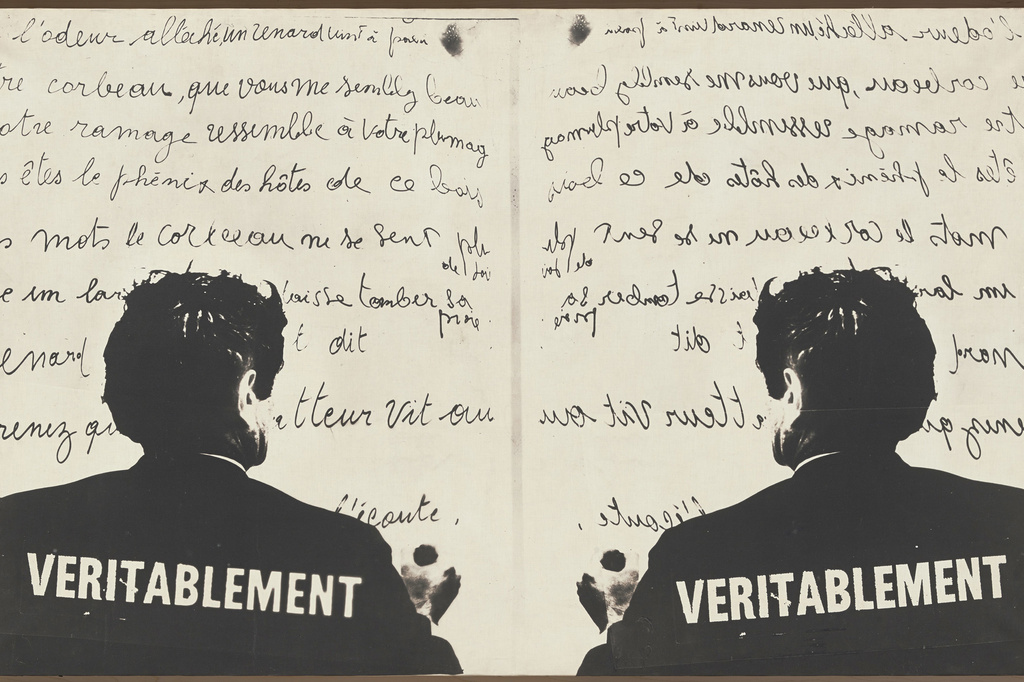 l'odeur alleché, un renard vint à peu
tre corbeau, que vous me semblez beau
otre ramage ressemble à votre plumag
s êtes le phénix des hôtes de ce bois
s mots le corbeau ne se sent
de joi
e un lar laisse tomber sa
proie
enard t dit
renez qu tteur vit au
l'écoute,
VERITABLEMENT
l'odeur alleché, un renard vint à peu
e corbeau, que vous me semblez beau
tre ramage ressemble à votre plumag
êtes le phénix des hôtes de ce bois
mots le corbeau ne se sent
de joi
un lar laisse tomber sa
proie
nard t dit
enez qu tteur vit au
l'écoute,
VERITABLEMENT